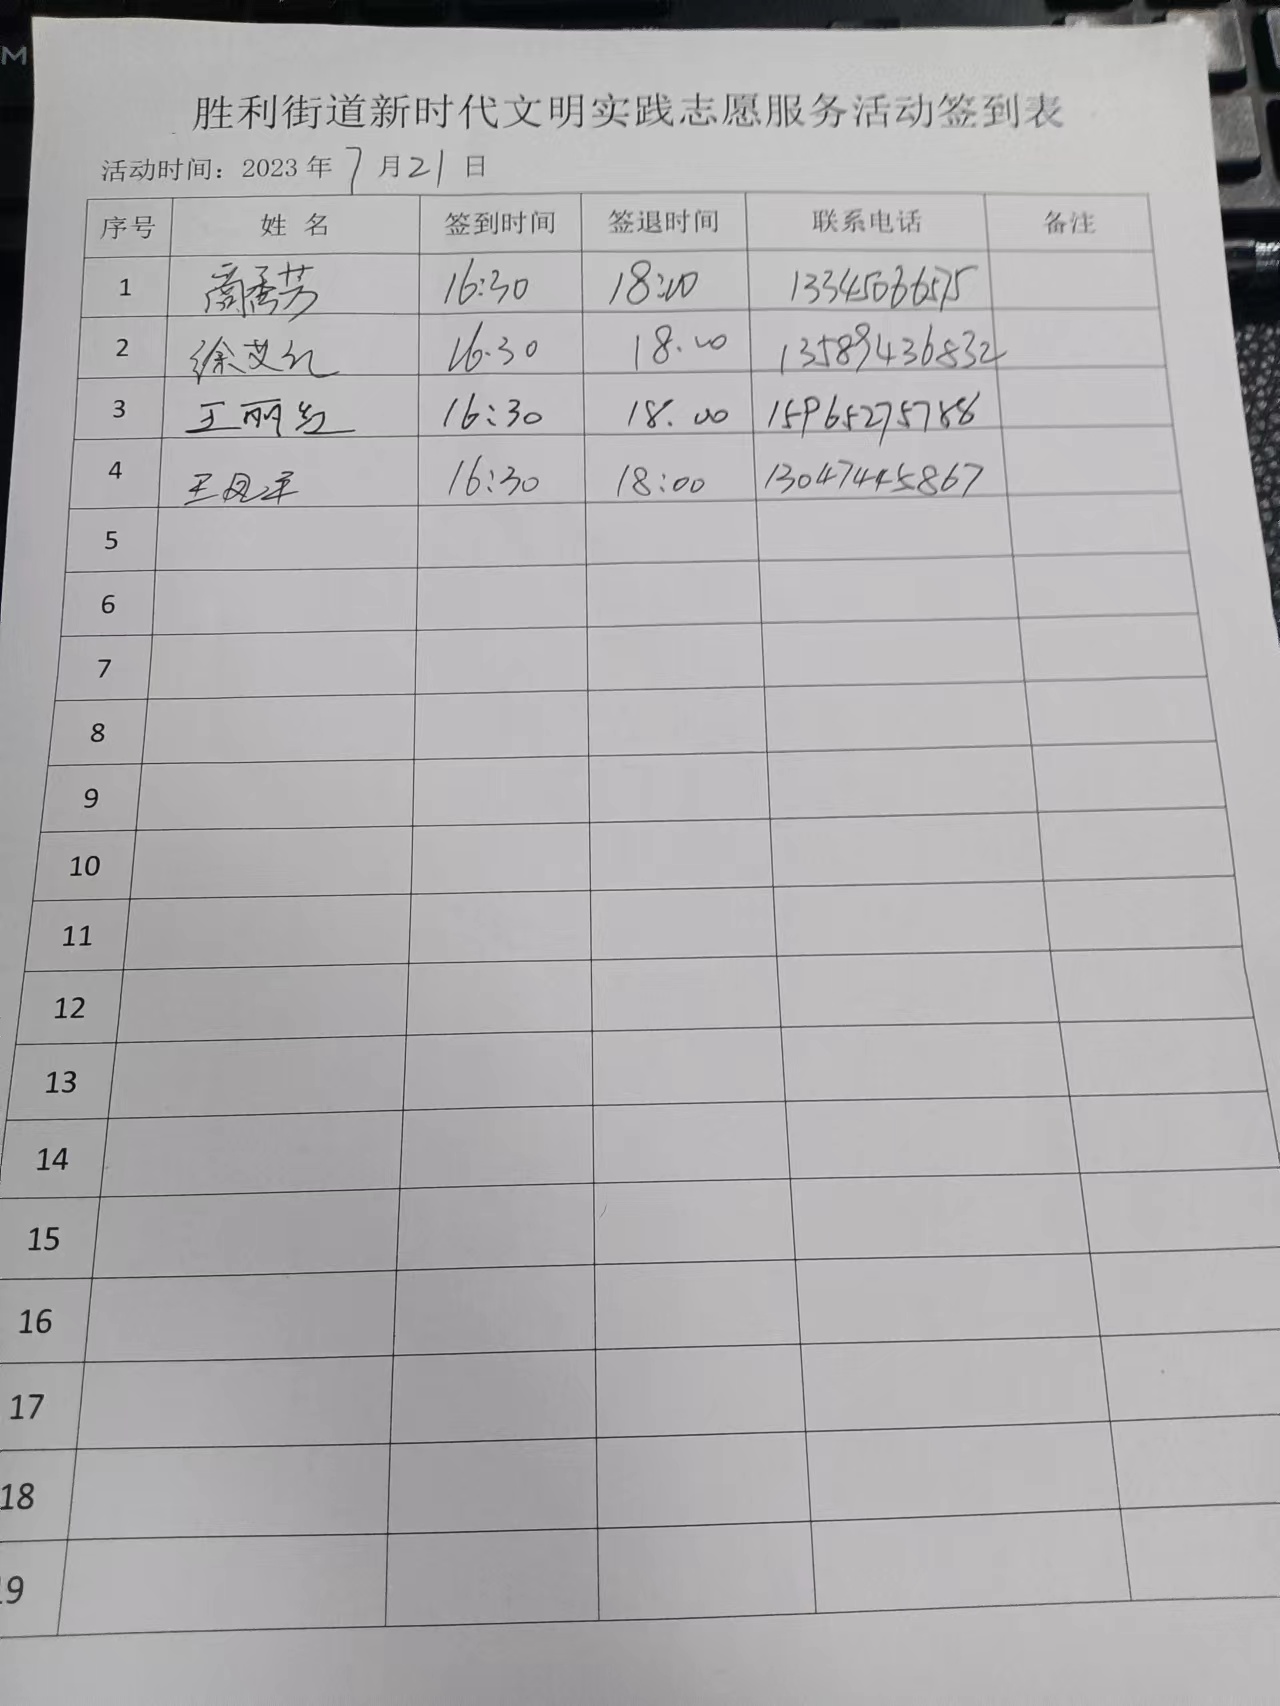 胜利街道新时代文明实践志愿服务活动签到表
活动时间：2023 年 7 月 21 日
序号 姓 名 签到时间 签退时间 联系电话 备注
1 16:30 18:00
2 徐艾红 16.30 18.00 13589436832
3 王丽红 16:30 18.00 15965275788
4 16:30 18:00 13047445867
5
6
7
8
9
10
11
12
13
14
15
16
17
18
19